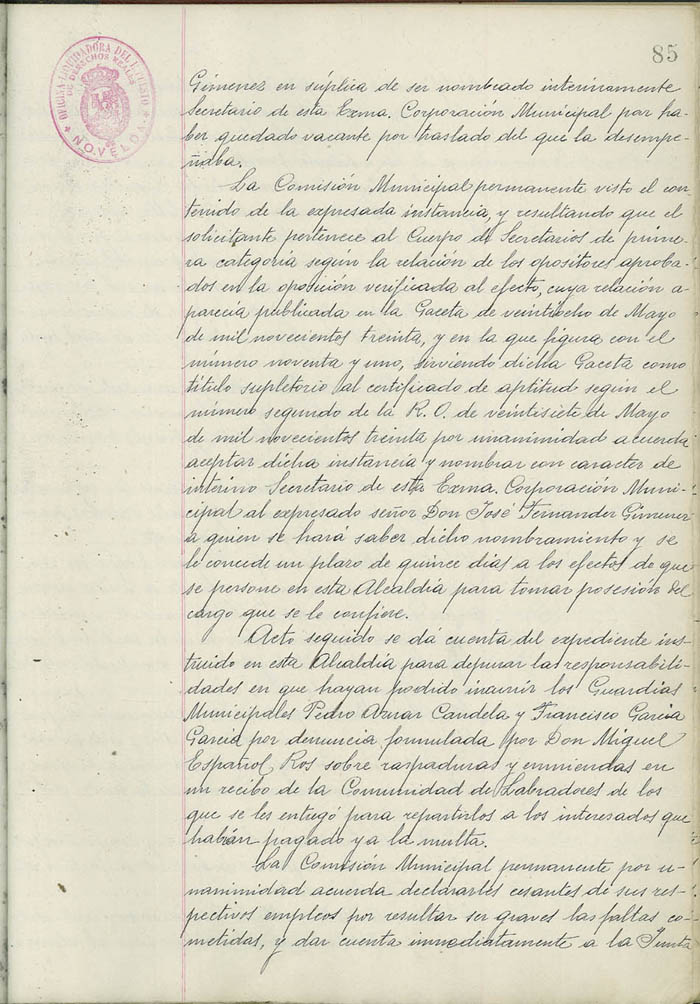 85
OFICINA LIQUIDADORA DEL
DE DERECHOS REALES
NOVELDA
Gimenez en súplica de ser nombrado interinamente
Secretario de esta Exma. Corporación Municipal por ha
ber quedado vacante por traslado del que la desempe-
ñaba.
La Comisión Municipal permanente visto el con
tenido de la expresada instancia, y resultando que el
solicitante pertenece al Cuerpo de Secretarios de prime-
ra categoría según la relación de los opositores aproba-
dos en la oposición verificada al efecto, cuya relación a-
parecía publicada en la Gaceta de veintiocho de Mayo
de mil novecientos treinta, y en la que figura con el
número noventa y uno, sirviendo dicha Gaceta como
título supletorio al certificado de aptitud según el
número segundo de la R. O. de veintisiete de Mayo
de mil novecientos treinta por unanimidad acuerda
aceptar dicha instancia y nombrar con caracter de
interino Secretario de esta Exma. Corporación Muni-
cipal al expresado señor Don José Fernandez Gimenez
a quien se hará saber dicho nombramiento y se
le concede un plazo de quince días a los efectos de que
se persone en esta Alcaldía para tomar posesión del
cargo que se le confiere.
Acto seguido se dá cuenta del expediente ins-
truido en esta Alcaldía para depurar las responsabili-
dades en que hayan podido incurrir los Guardias
Municipales Pedro Aznar Candela y Francisco Garcia
Garcia por denuncia formulada por Don Miguel
Español Ros sobre raspaduras y enmiendas en
un recibo de la Comunidad de Labradores de los
que se les entregó para repartirlos a los interesados que
habían pagado ya la multa.
La Comisión Municipal permanente por u-
nanimidad acuerda declararles cesantes de sus res-
pectivos empleos por resultar ser graves las faltas co-
metidas, y dar cuenta inmediatamente a la Junta